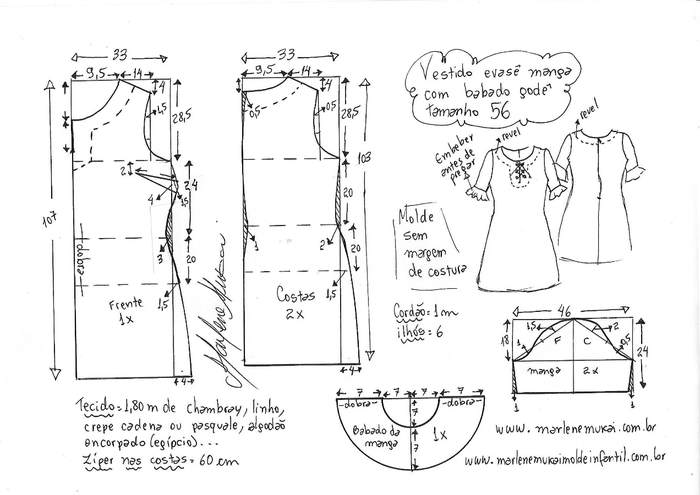 33
9,5
14
4
1,5
28,5
107
2
24
4
1,5
3
20
1,5
dobra
Frente
1x
4
33
9,5
14
4
0,5
0,5
28,5
103
20
1
2
20
1,5
Costas
2x
4
Marlene Mukai
Vestido evasê manga
com babado godê
tamanho 56
revel
revel
Embeber
antes de
pregar
Molde
sem
margem
de costura
Cordão = 1m
ilhós = 6
46
1,5
2
18
1
F
C
0,5
24
manga
2x
1
1
7
7
7
7
dobra
dobra
7
7
Babado da
manga
1x
Tecido = 1,80 m de chambray, linho,
crepe cadena ou pasquale, algodão
encorpado (egípcio)...
Zíper nas costas = 60 cm
www.marlenemukai.com.br
www.marlenemukaimoldeinfantil.com.br